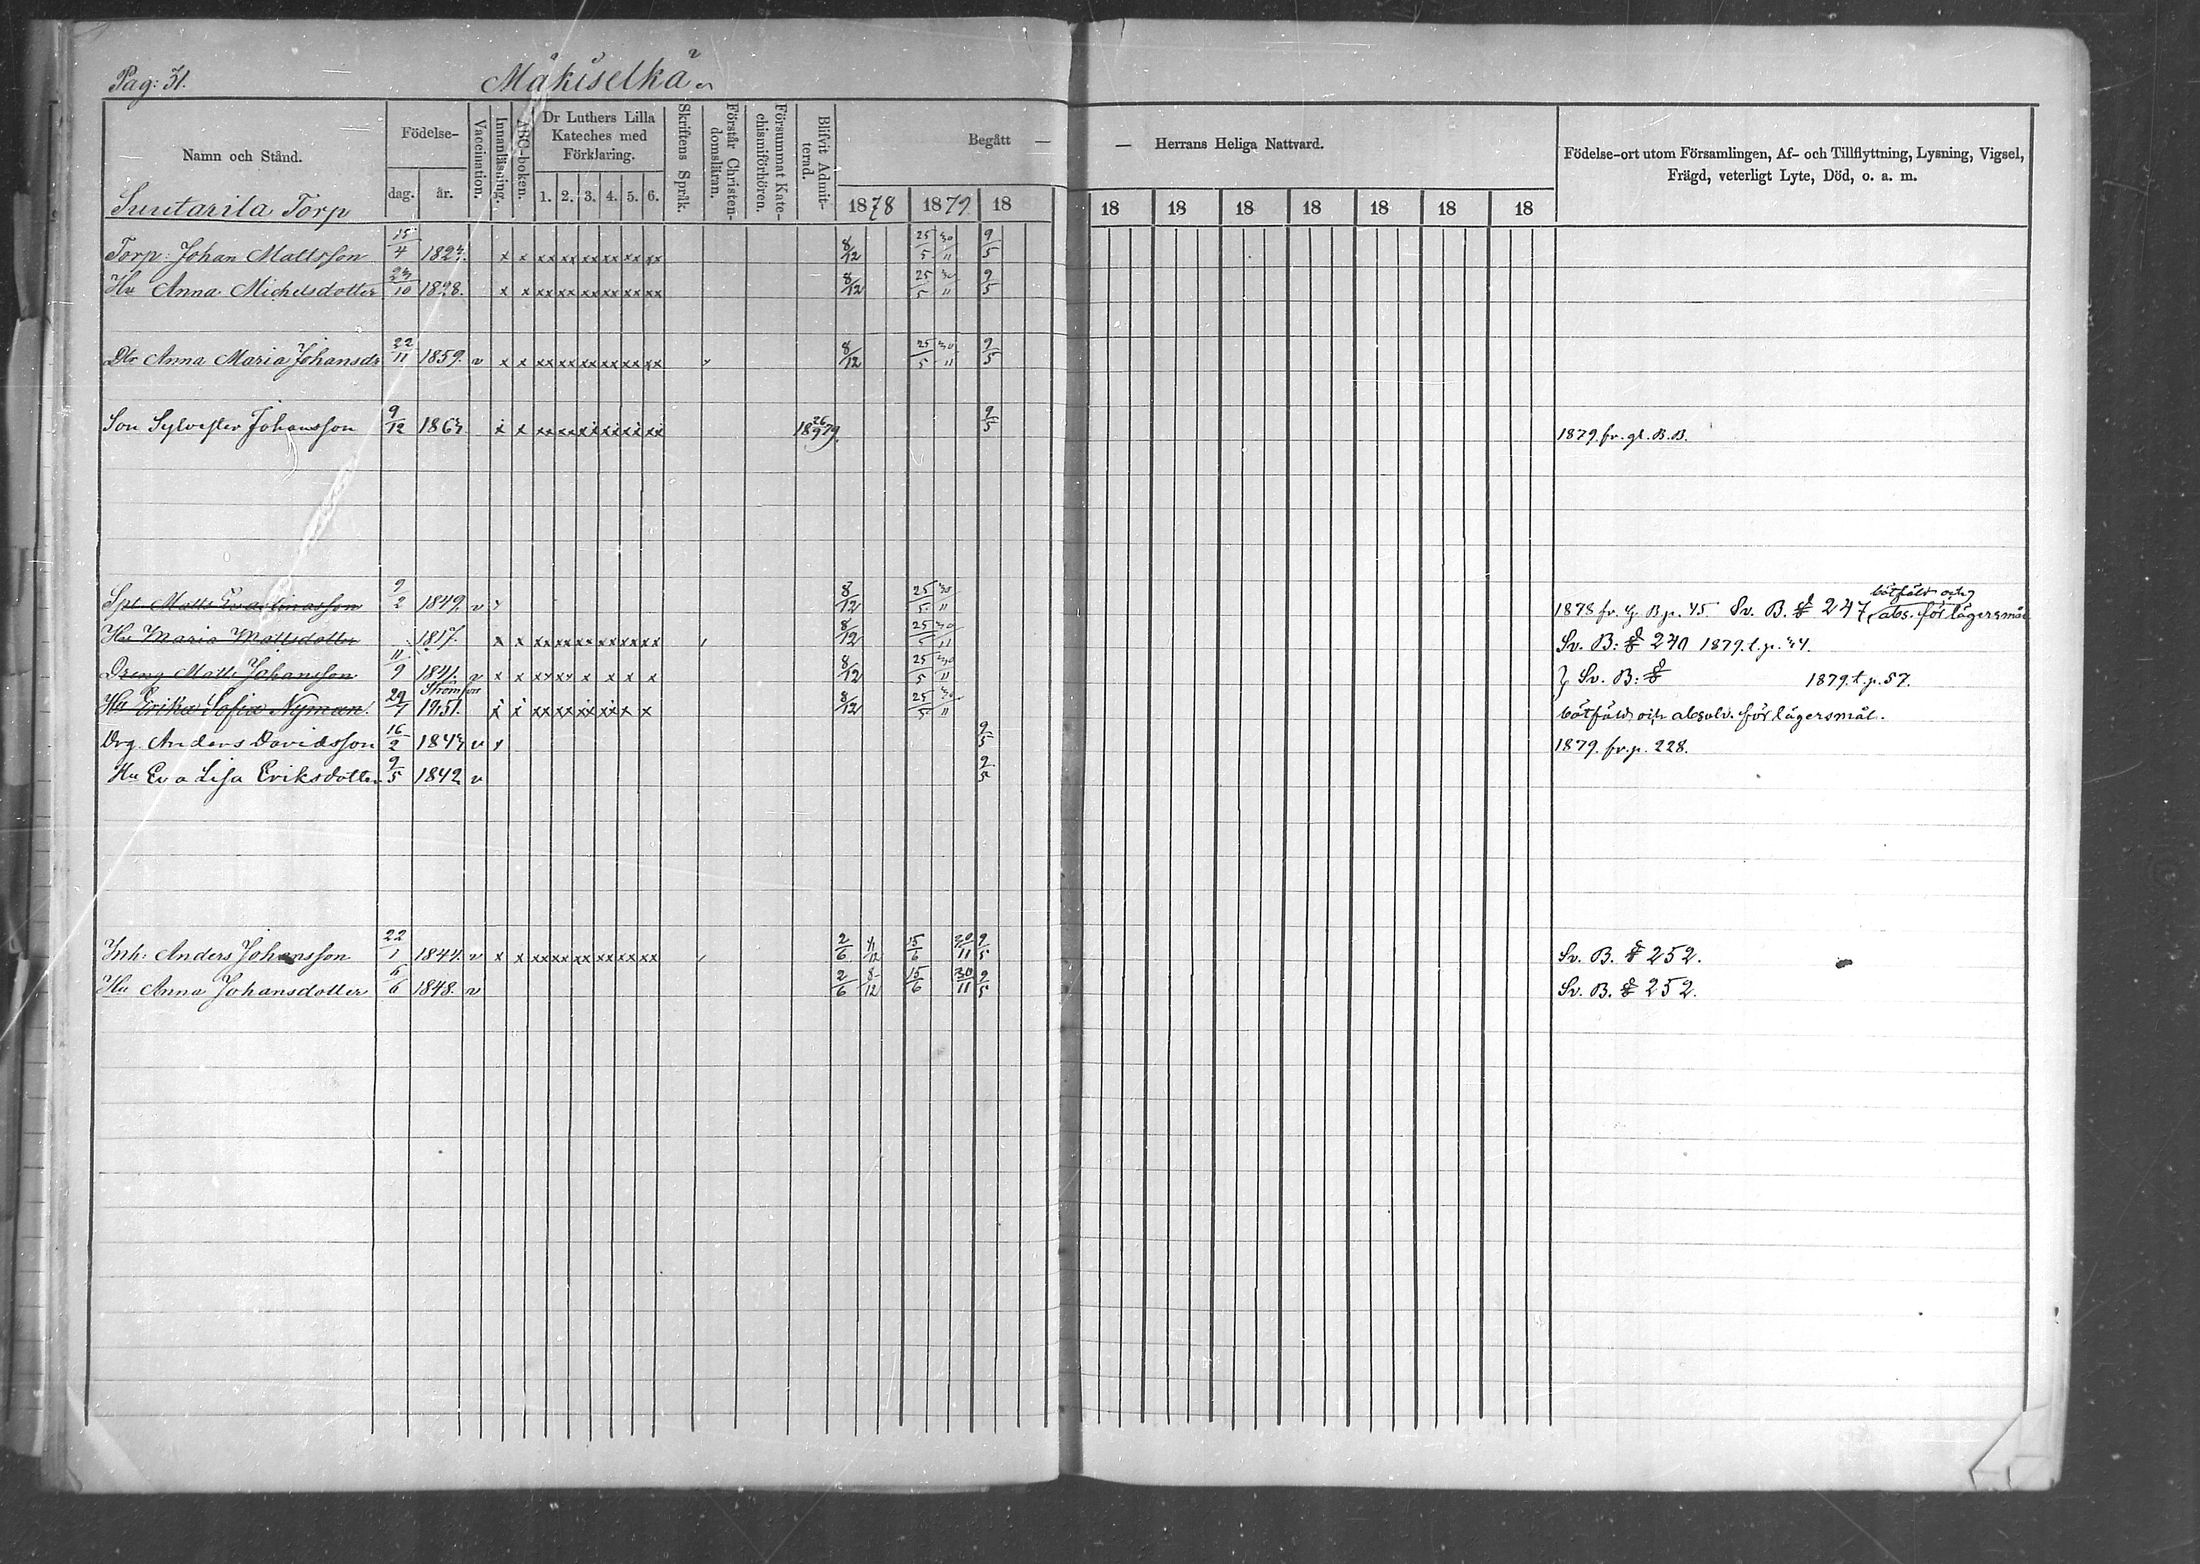 Pag: 31. Mäkiselkä
Namn och Stånd. Födelse- Vaccination. Innanläsning. ABC-boken. Dr Luthers Lilla Kateches med Förklaring. Skriftens Språk. Förstår Christendomsläran. Försummat Katechismiförhören. Blifvit Admitterad. Begått — — Herrans Heliga Nattvard. Födelse-ort utom Församlingen, Af- och Tillflyttning, Lysning, Vigsel, Frägd, veterligt Lyte, Död, o. a. m.
dag. år. 1. 2. 3. 4. 5. 6. 1878 1879 18 18 18 18 18 18 18 18
Suutarila Torp
Torp: Johan Mattsson 15/4 x x xx xx xx xx xx xx 8/12 25/5 30/11 9/5
Hu Anna Michelsdotter 1828. x x xx xx xx xx xx xx 8/12 25/5 30/11 9/5
Dtr Anna Maria Johansdr 22/11 1859. v x x xx xx xx xx xx xx 8/12 25/5 30/11 9/5
Son Sylvester Johansson 9/12 x x xx xx xx xx xx xx 9/5 1879. fr. gl. B.B.
Spt. Matts 1849. v 8/12 25/5 30/11 1878 fr. B p. 45 Sv. B. 247 bötfäld och abs. för lägersmål
Hu Maria Mattsdotter 1817. x x xx xx xx xx xx xx 8/12 25/5 30/11 Sv. B: 1879. t. p. 44.
Dreng Matts Johansson 11/9 v x x xx xx x x x x 8/12 25/5 30/11 } Sv. B: 1879. t. p. 57.
Hu Erika Sofia Nyman. 1851. x x xx xx xx xx x x 8/12 25/5 30/11 bötfäld och absolv. för lägersmål.
Drg. Anders Davidsson 16/2 v 9/5 1879. fr. p. 228.
Hu Eva Lisa Eriksdotter 9/5 1842 v 9/5
Inh: Anders Johansson 22/1 1844. v x x xx xx xx xx xx xx 2/6 15/6 30/11 9/5 Sv. B. 252.
Hu Anna Johansdotter 1848. v 2/6 8/12 15/6 30/11 9/5 Sv. B. 252.